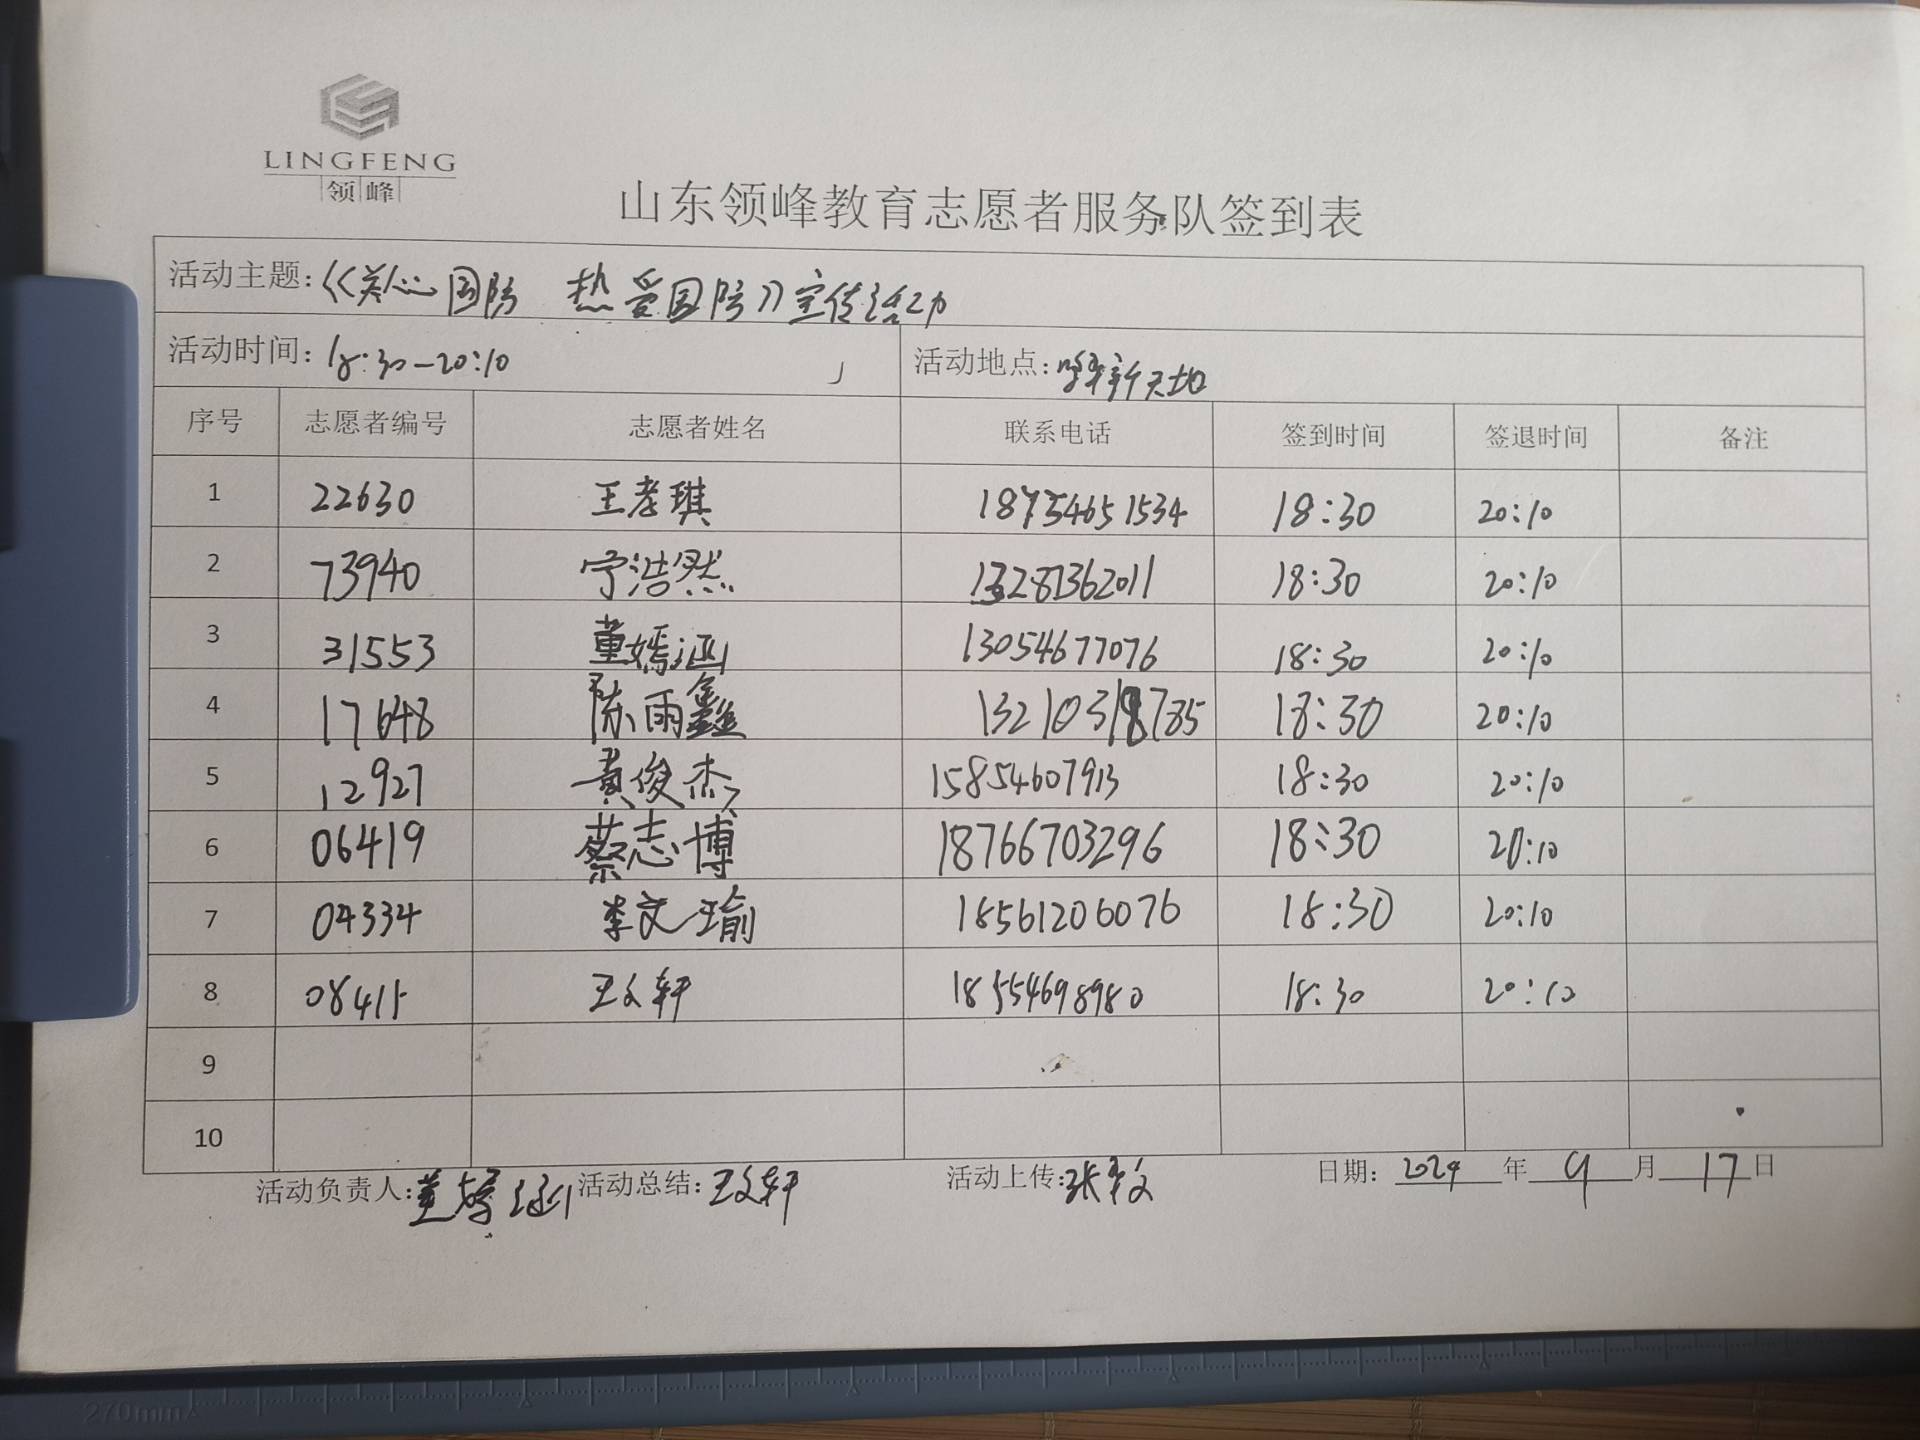 LINGFENG
领峰
山东领峰教育志愿者服务队签到表
活动主题:《关心国防 热爱国防》宣传活动
活动时间: 18:30—20:10 活动地点: 新天地
序号 志愿者编号 志愿者姓名 联系电话 签到时间 签退时间 备注
1 22630 王孝琪 18754651534 18:30 20:10
2 73940 宁浩然 13281362011 18:30 20:10
3 31553 董嫣涵 13054677076 18:30 20:10
4 17648 陈雨鑫 18:30 20:10
5 12927 黄俊杰 15854607913 18:30 20:10
6 06419 蔡志博 18766703296 18:30 20:10
7 04334 李文瑜 18561206076 18:30 20:10
8 08415 王文轩 18554698980 18:30 20:10
9
10
活动负责人:董嫣涵 活动总结:王文轩 活动上传: 日期: 2024 年 9 月 17 日
270mm